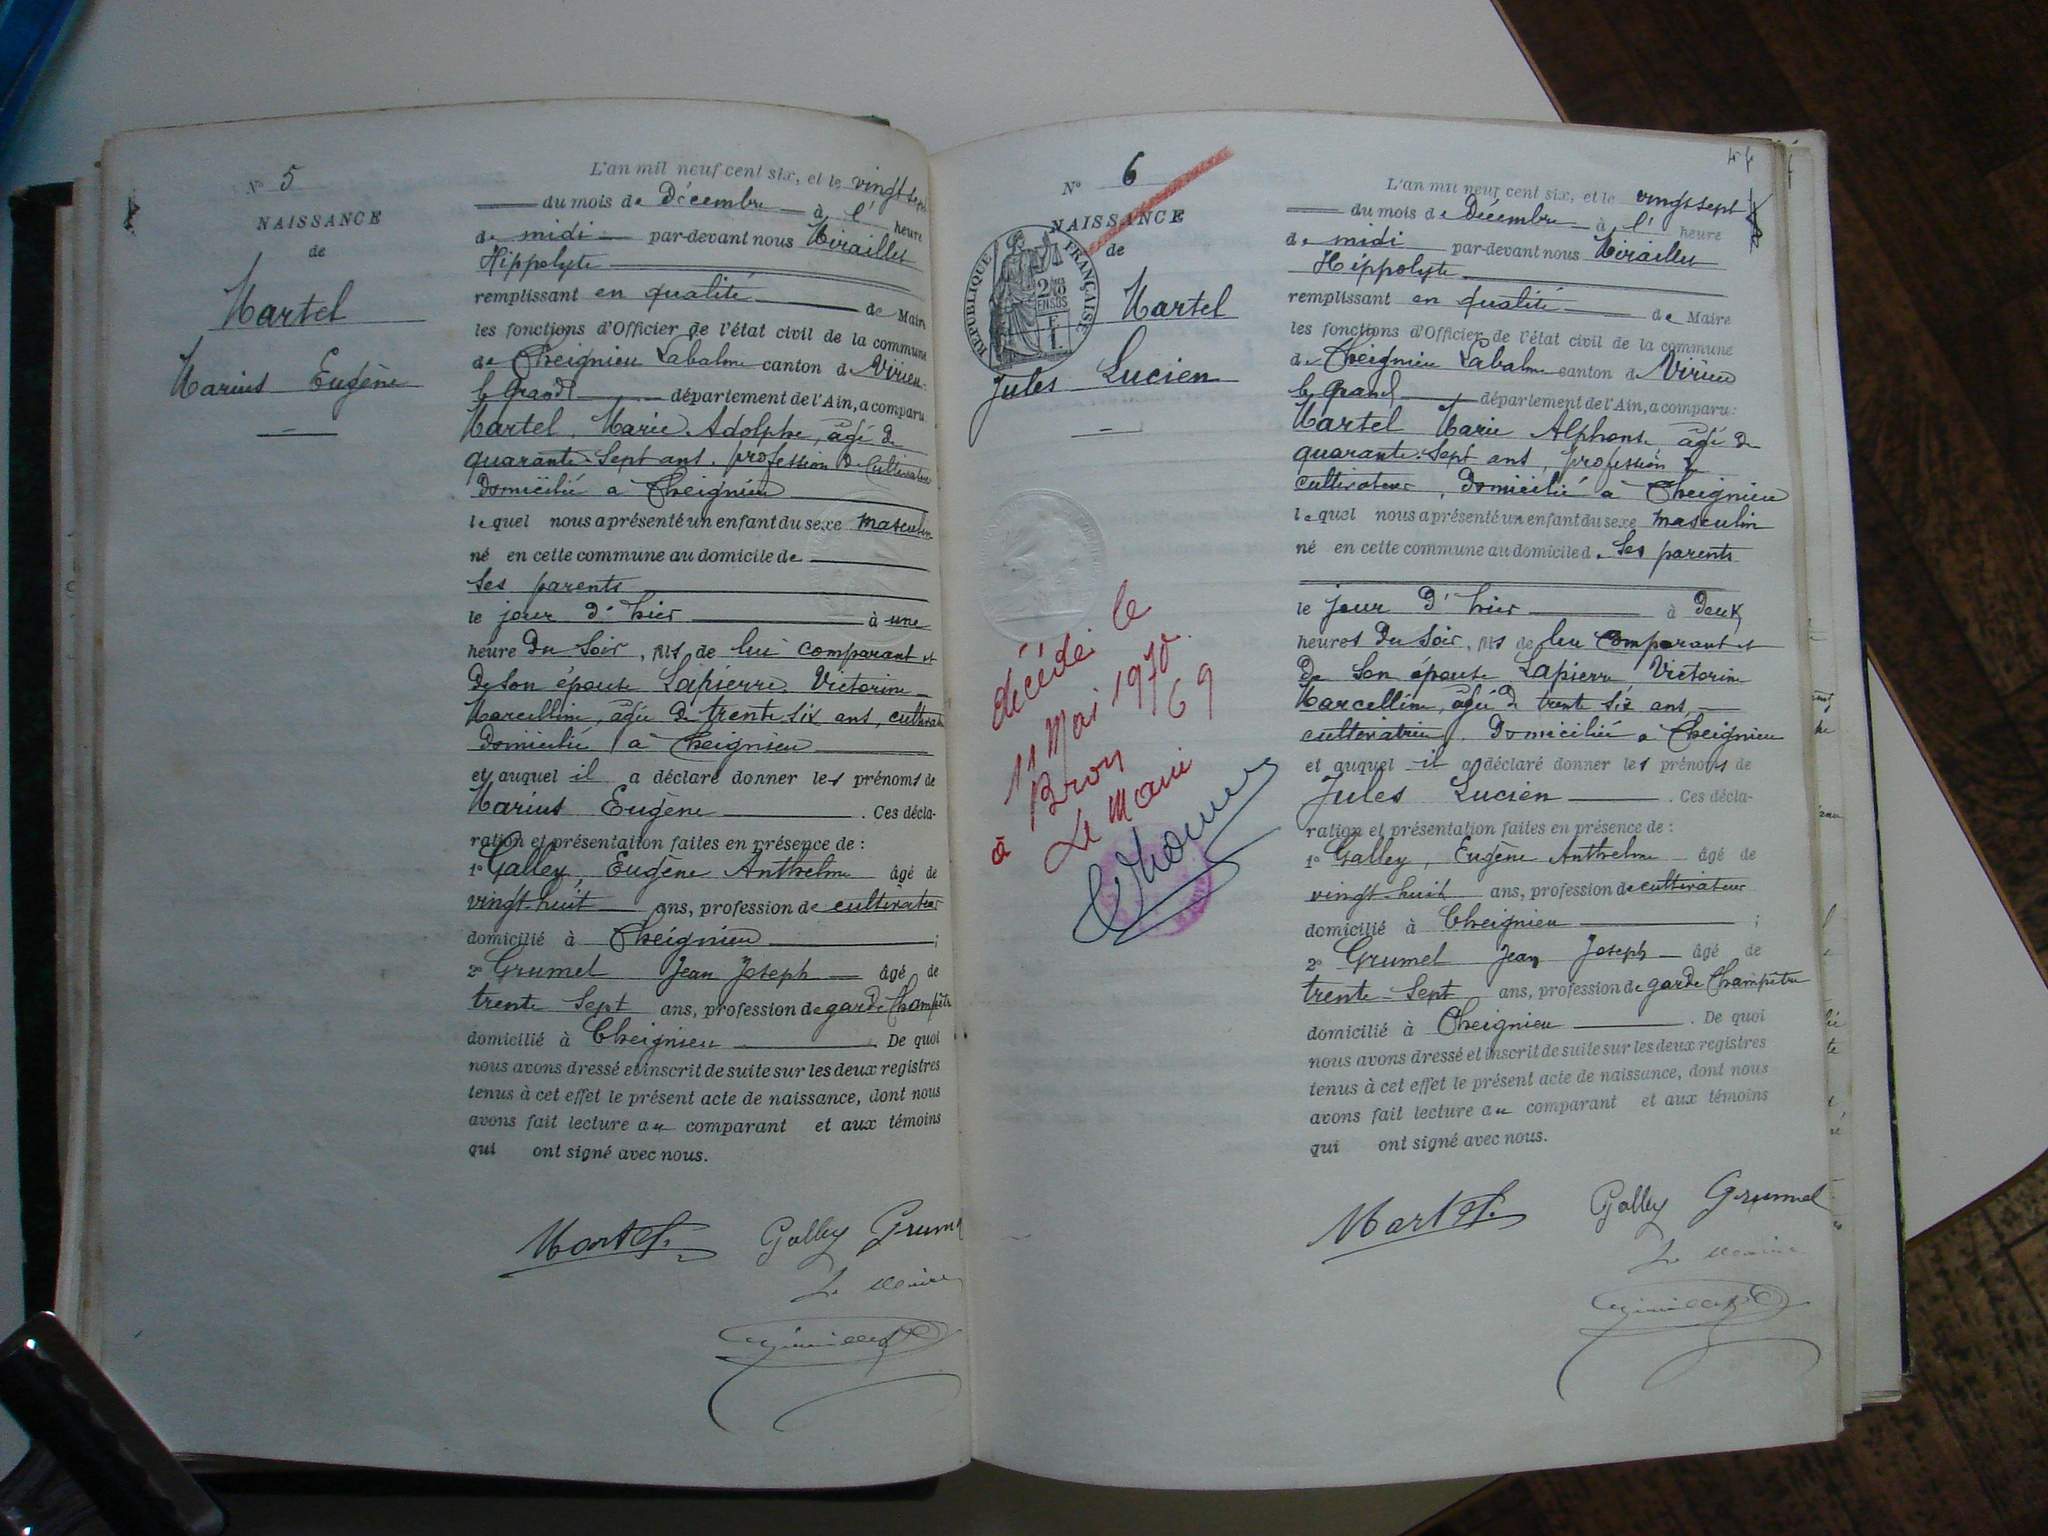 N° 5
NAISSANCE
de
Martel
Marius Eugène
L'an mil neuf cent six, et le vingt sept
du mois de Décembre à l' heure
de midi par-devant nous Miraillet
Hippolyte
remplissant en qualité de Maire
les fonctions d'Officier de l'état civil de la commune
de Cheignieu Labalme canton de Virieu
le Grand département de l'Ain, a comparu:
Martel Marie Adolphe, âgé de
quarante-sept ans, profession de Cultivateur
Domicilié a Cheignieu
lequel nous a présenté un enfant du sexe masculin
né en cette commune au domicile de
ses parents
le jour d'hier à une
heure du soir, fils de lui comparant et
de son épouse Lapierre Victorine
Marcelline, âgée de trente six ans, cultivatrice
Domiciliée à Cheignieu
et auquel il a déclaré donner les prénoms de
Marius Eugène . Ces décla-
ration et présentation faites en présence de :
1° Galley, Eugène Anthelme âgé de
vingt-huit ans, profession de cultivateur
domicilié à Cheignieu ;
2° Grumel Jean Joseph âgé de
trente sept ans, profession de garde Champêtre
domicilié à Cheignieu . De quoi
nous avons dressé et inscrit de suite sur les deux registres
tenus à cet effet le présent acte de naissance, dont nous
avons fait lecture au comparant et aux témoins
qui ont signé avec nous.
Martel Galley Grumel
Le Maire
N° 6
NAISSANCE
de
RÉPUBLIQUE FRANÇAISE
2/10es
EN SUS
Martel
Jules Lucien
décédé le
11 Mai 1970
à Bron 69
Le Maire
L'an mil neuf cent six, et le vingt sept
du mois de Décembre à l' heure
de midi par-devant nous Miraillet
Hippolyte
remplissant en qualité de Maire
les fonctions d'Officier de l'état civil de la commune
de Cheignieu Labalme canton de Virieu
le Grand département de l'Ain, a comparu:
Martel Marie Alphonse âgé de
quarante-sept ans, profession de
cultivateur, Domicilié à Cheignieu
lequel nous a présenté un enfant du sexe masculin
né en cette commune au domicile de ses parents
le jour d'hier à deux
heures du soir, fils de lui comparant et
de son épouse Lapierre Victorine
Marcelline, âgée de trente six ans,
cultivatrice, Domiciliée à Cheignieu
et auquel il a déclaré donner les prénoms de
Jules Lucien . Ces décla-
ration et présentation faites en présence de :
1° Galley, Eugène Anthelme âgé de
vingt-huit ans, profession de cultivateur
domicilié à Cheignieu ;
2° Grumel Jean Joseph âgé de
trente-sept ans, profession de garde Champêtre
domicilié à Cheignieu . De quoi
nous avons dressé et inscrit de suite sur les deux registres
tenus à cet effet le présent acte de naissance, dont nous
avons fait lecture au comparant et aux témoins
qui ont signé avec nous.
Martel Galley Grumel
Le Maire